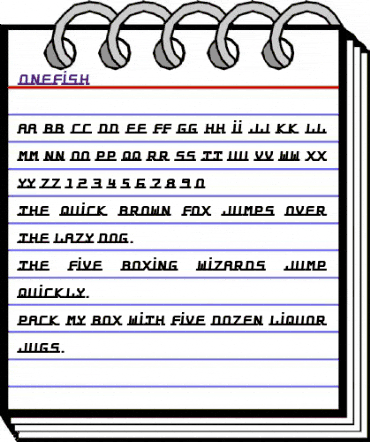 ONEFiSH
AA BB CC DD EE FF GG HH ii JJ KK LL
MM NN OO PP QQ RR SS TT UU VV WW XX
YY ZZ 1 2 3 4 5 6 7 8 9 0
THE QUiCK BROWN FOX JUMPS OVER
THE LAZY DOG.
THE FiVE BOXiNG WiZARDS JUMP
QUiCKLY.
PACK MY BOX WiTH FiVE DOZEN LiQUOR
JUGS.